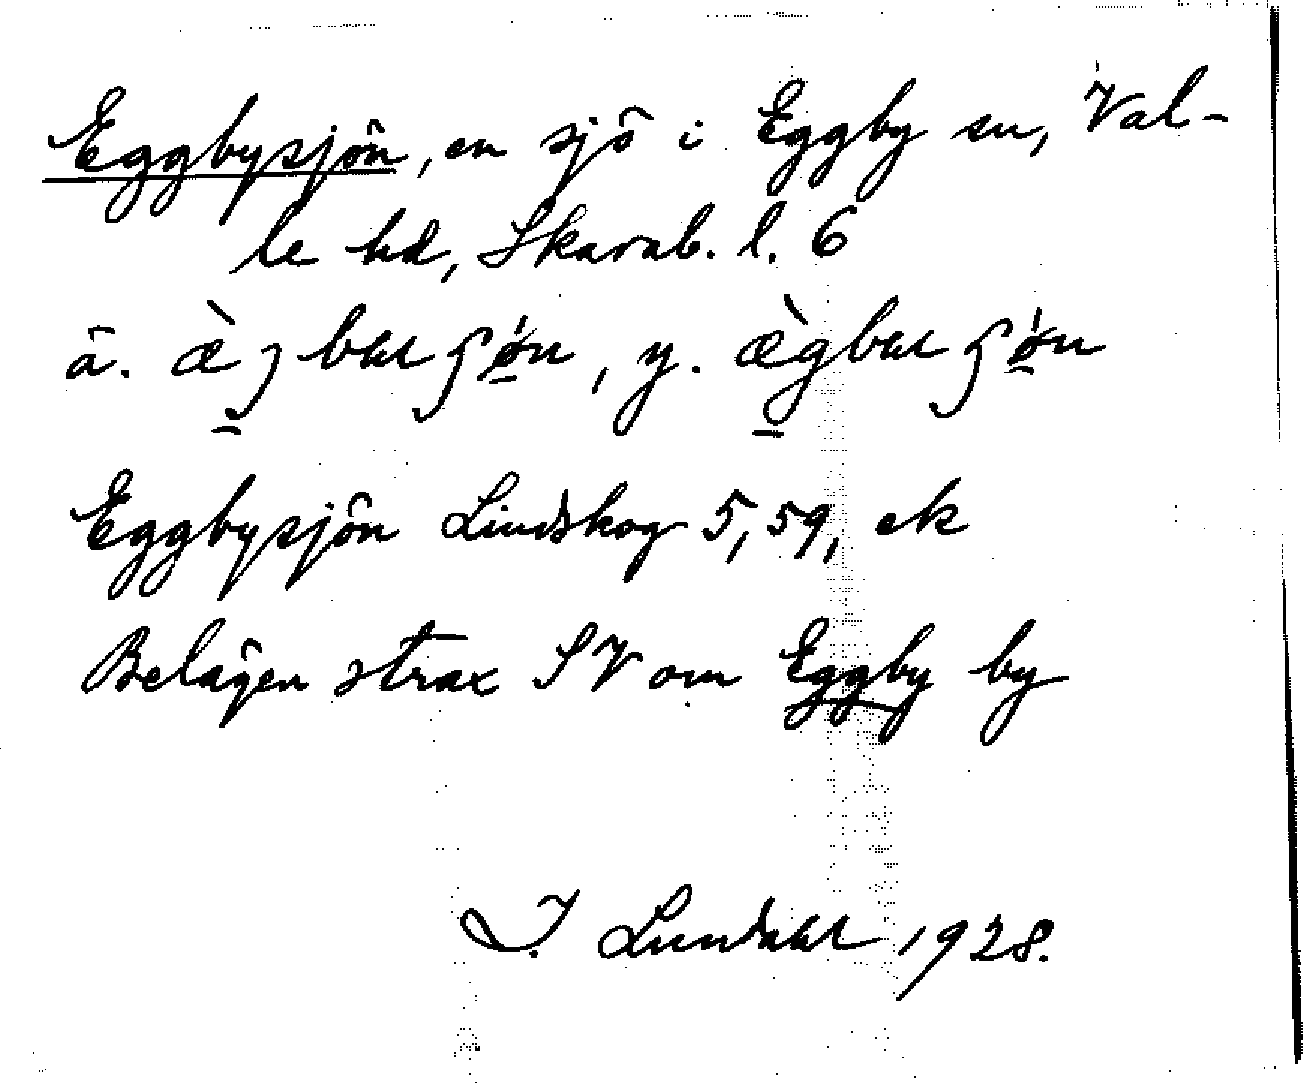 Eggbysjön, en sjö i Eggby sn, Val-
le hd, Skarab. l. 6
ä. , y.
Eggbysjön Lindskog 5,59, ek
Belägen strax SV om Eggby by
I. Lundahl 1928.